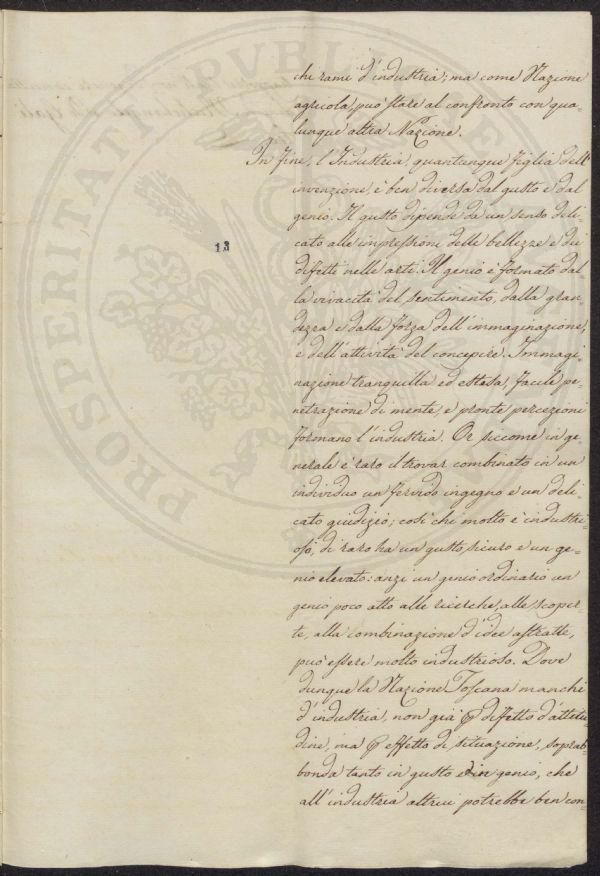 chi rami d'industria; ma come Nazione
agricola, può stare al confronto con qua-
lunque altra Nazione.
In fine, l'Industria, quantunque figlia dell'
invenzione, è ben diversa dal gusto e dal
genio. Il gusto dipende da un senso deli-
cato alle impressioni delle bellezze e dei
difetti nelle arti. Il genio è formato dal
la vivacità del sentimento, dalla gran-
dezza e dalla forza dell'immaginazione,
e dell'attività del concepire. Immagi-
nazione tranquilla ed estesa, facile pe-
netrazione di mente, e pronte percezioni
formano l'industria. Or siccome in ge-
nerale è raro il trovar combinato in un
individuo un fervido ingegno e un deli-
cato giudizio; così chi molto è industri-
oso, di raro ha un gusto sicuro e un ge-
nio elevato: anzi un genio ordinario un
genio poco atto alle ricerche, alle scoper-
te, alla combinazione d'idee astratte,
può essere molto industrioso. Dove
dunque la Nazione Toscana manchi
d'industria, non già p difetto d'attitu
dine, ma p effetto di situazione, soprab
bonda tanto in gusto ed in genio, che
all'industria altrui potrebbe ben con-
13
PROSPERITATI PVBLICAE